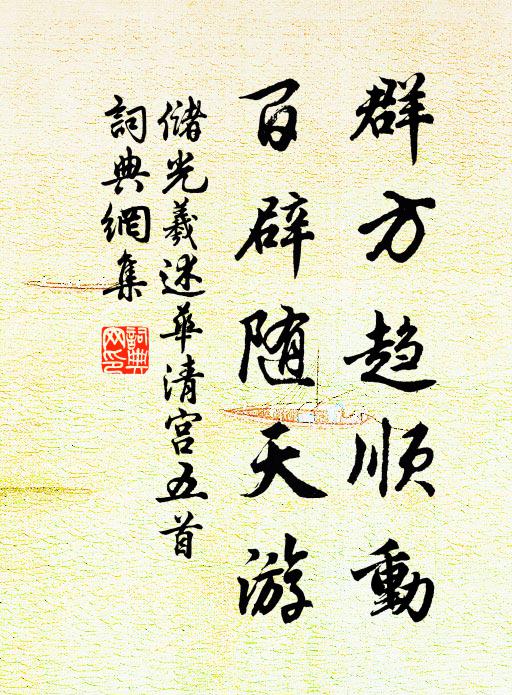 群方趋顺動
百辟随天游
儲光羲述華清宫五首
詞典網集
詞典网印